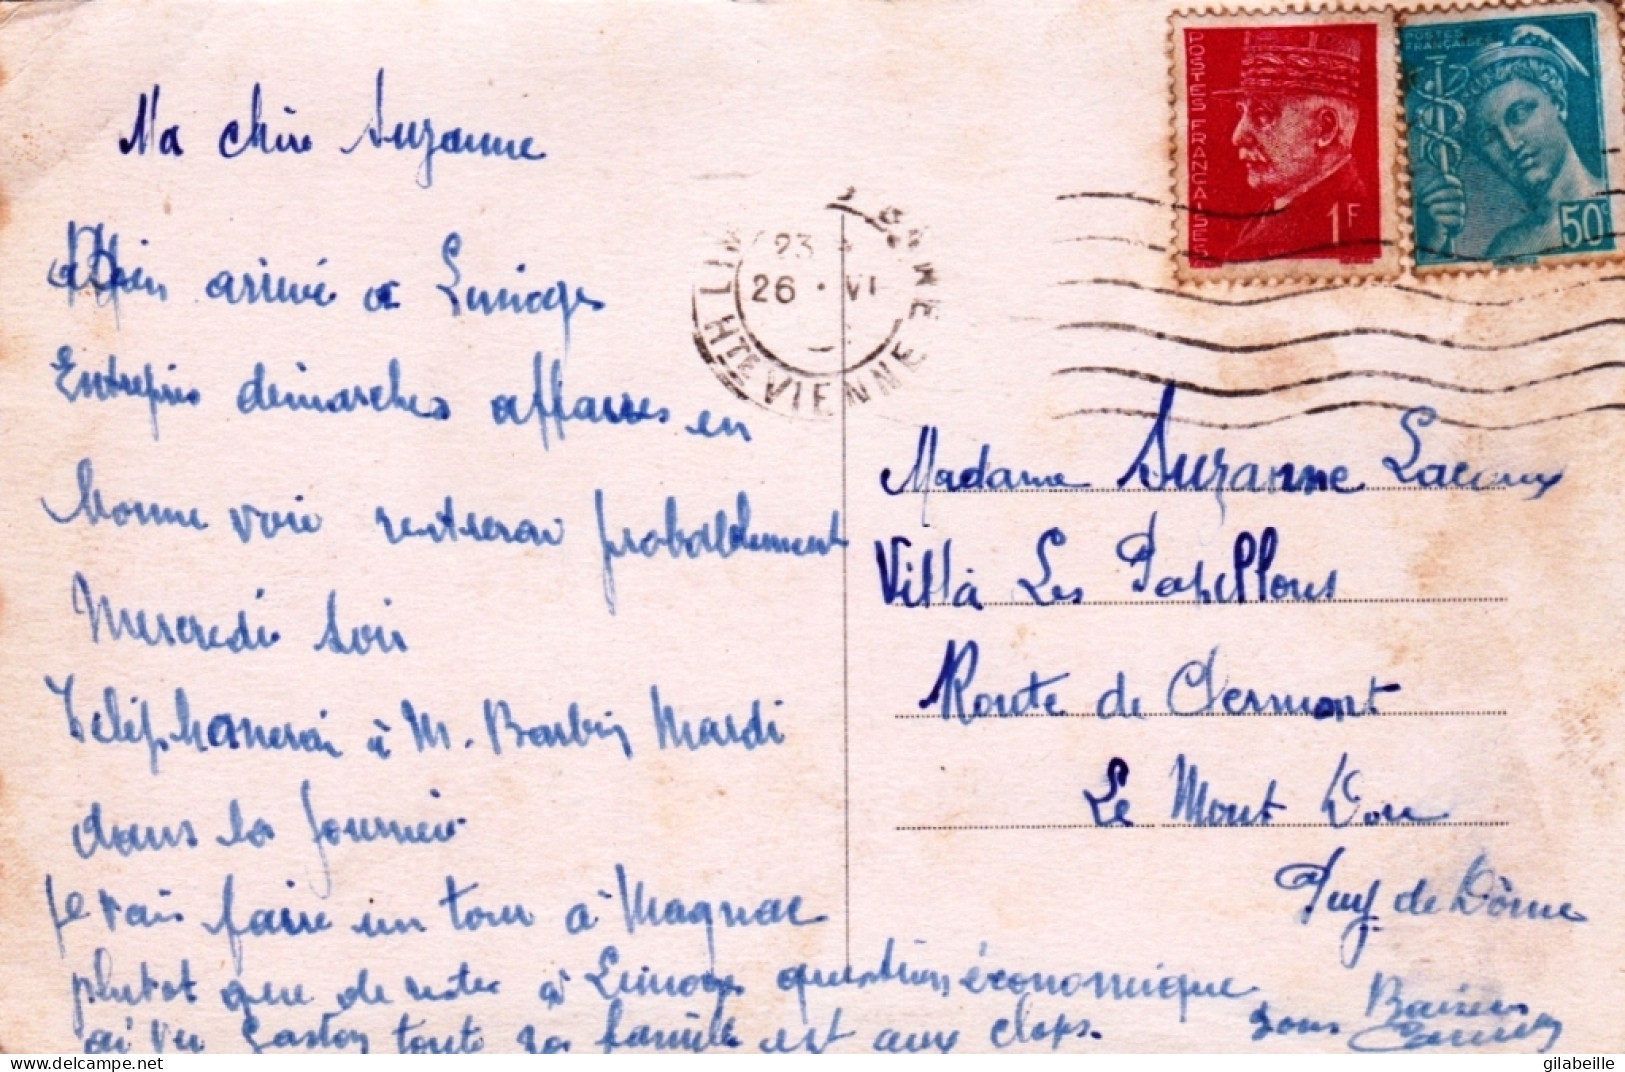 Ma chère Suzanne
Bien arrivé a Limoges
Entrepris démarches affaires en
bonne voie rentrerai probablement
Mercredi soir
Téléphonerai à M. Barbin Mardi
dans la journée
Je vais faire un tour à Magnac
plutot que de rester à Limoges question économique
ai vu Gaston toute sa famille est aux clops.
Baisers
POSTES FRANÇAISES
1F
POSTES
FRANÇAISES
50c
23
26 · VI
HTE VIENNE
Madame Suzanne Lacoux
Villa Les Papillons
Route de Clermont
Le Mont Dore
Puy de Dôme
gilabeille